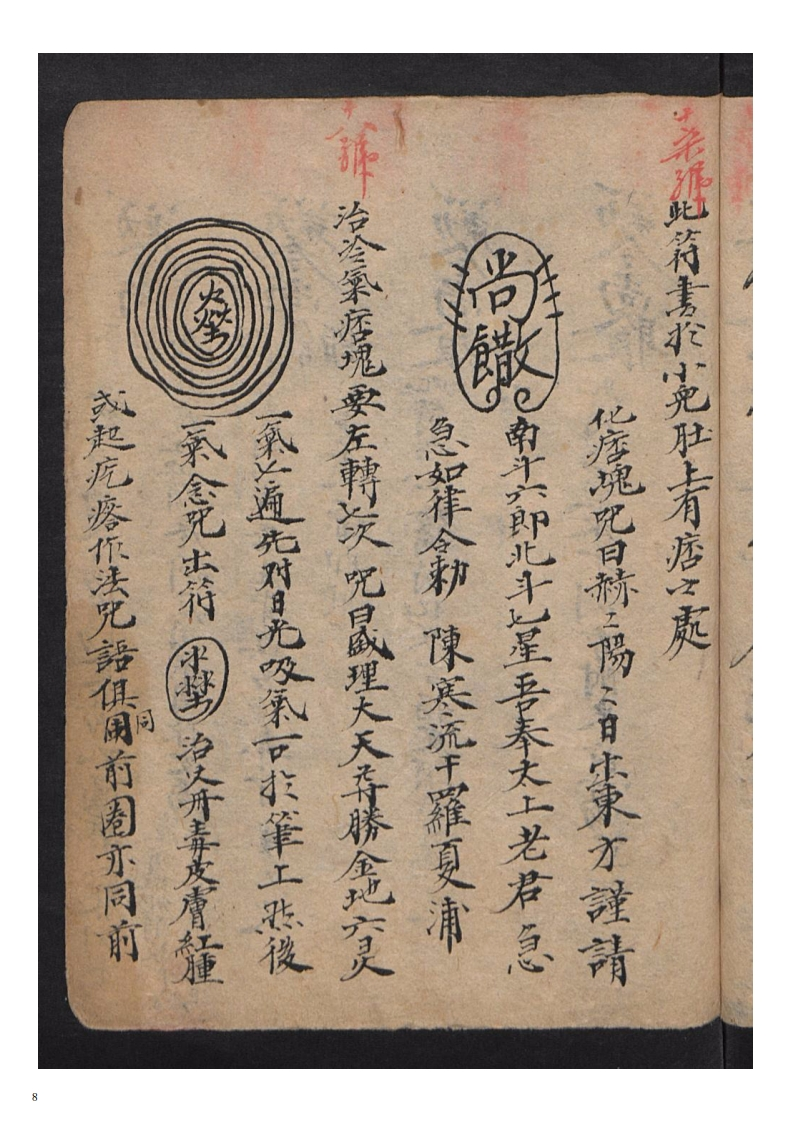 十柒號
此符書於小兒肚上有痞之處
化痞塊咒曰赫〻陽〻日出東方謹請
南斗六郎北斗七星吾奉太上老君急
急如律令勅 陳寒流干羅夏浦
尚
十 號
治冷氣痞塊要左轉七次咒曰 理大天尊勝金地六灵
一氣七遍先对日光吸氣一口於筆上然後
一氣念咒出符 治火丹毒皮膚紅腫
或起疙瘩作法咒語俱用同前圈亦同前
8